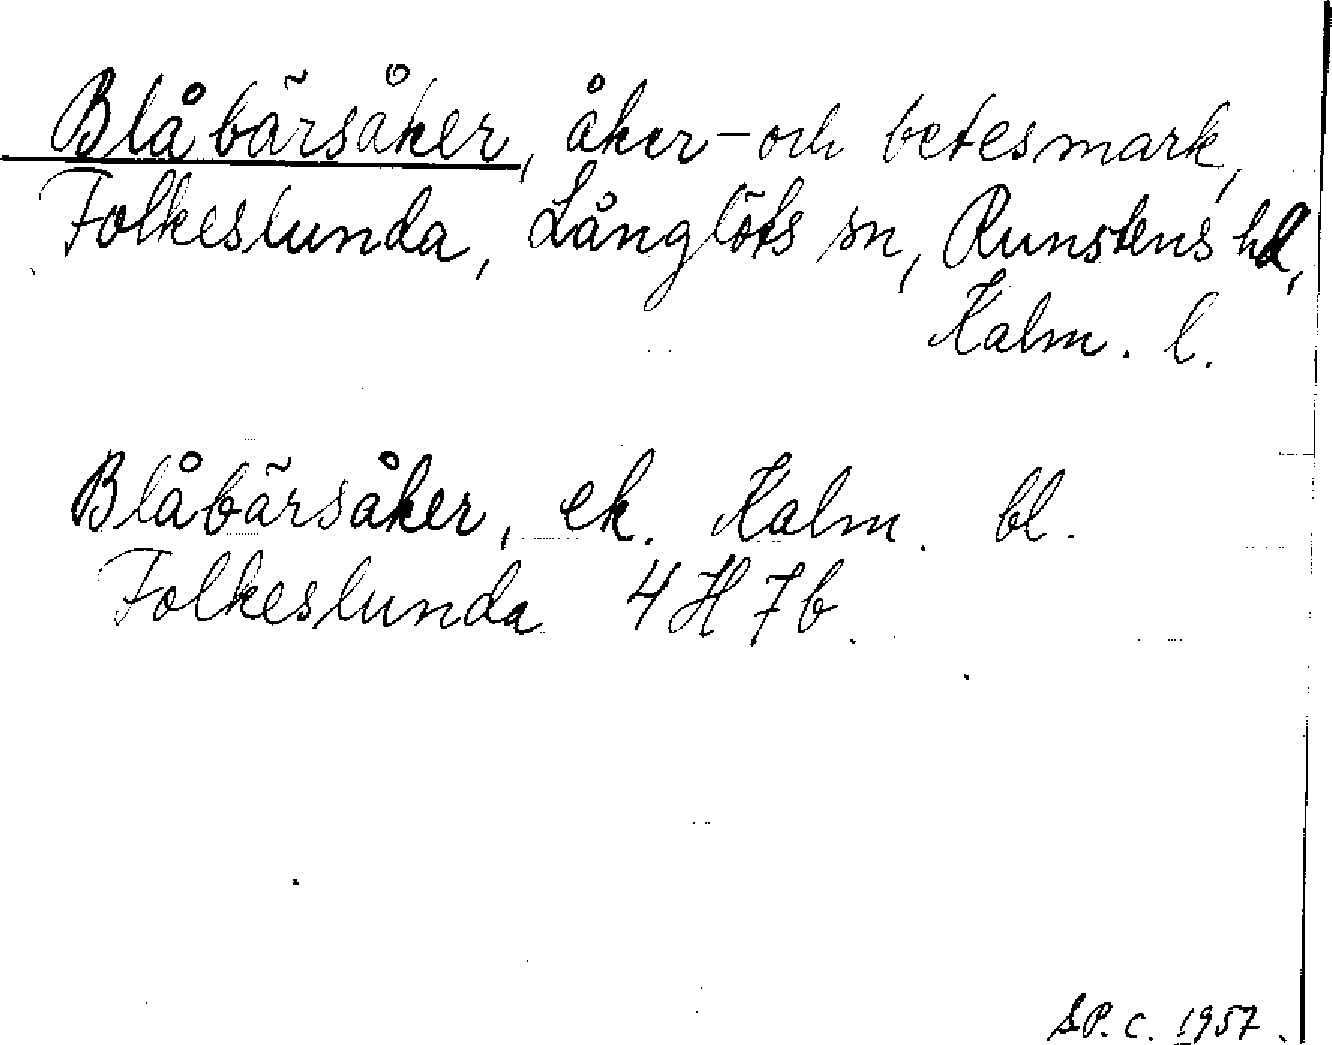 Blåbärsåker, åker- och betesmark,
Folkeslunda, Långlöts sn, Runstens hd,
Kalm. l.
Blåbärsåker, ek. Kalm. bl.
Folkeslunda 4 H 7 b.
S.P.C. 1957.